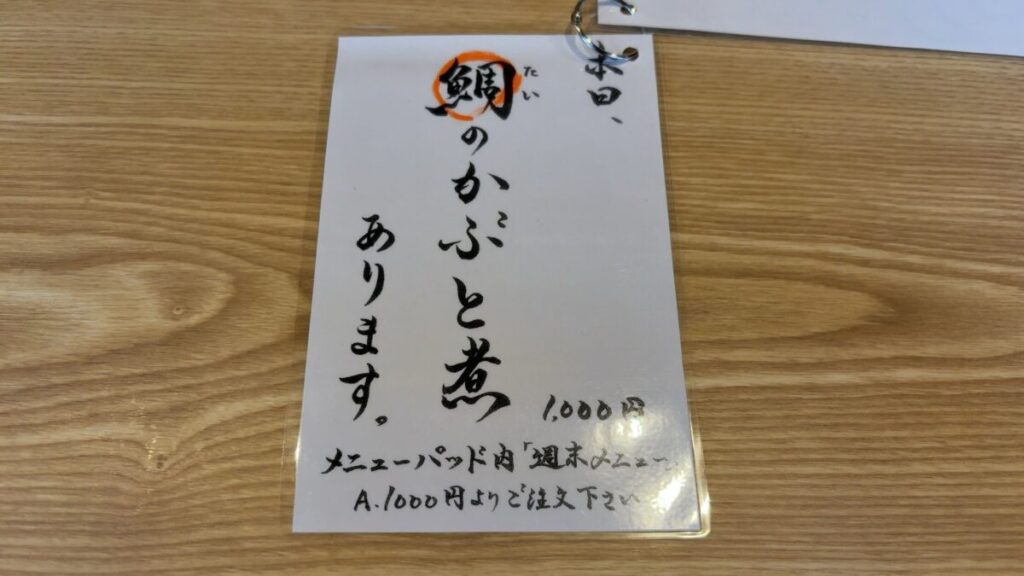 本日、
鯛のかぶと煮
たい
あります。
1,000円
メニューパッド内「週末メニュー」
A.1000円よりご注文下さい